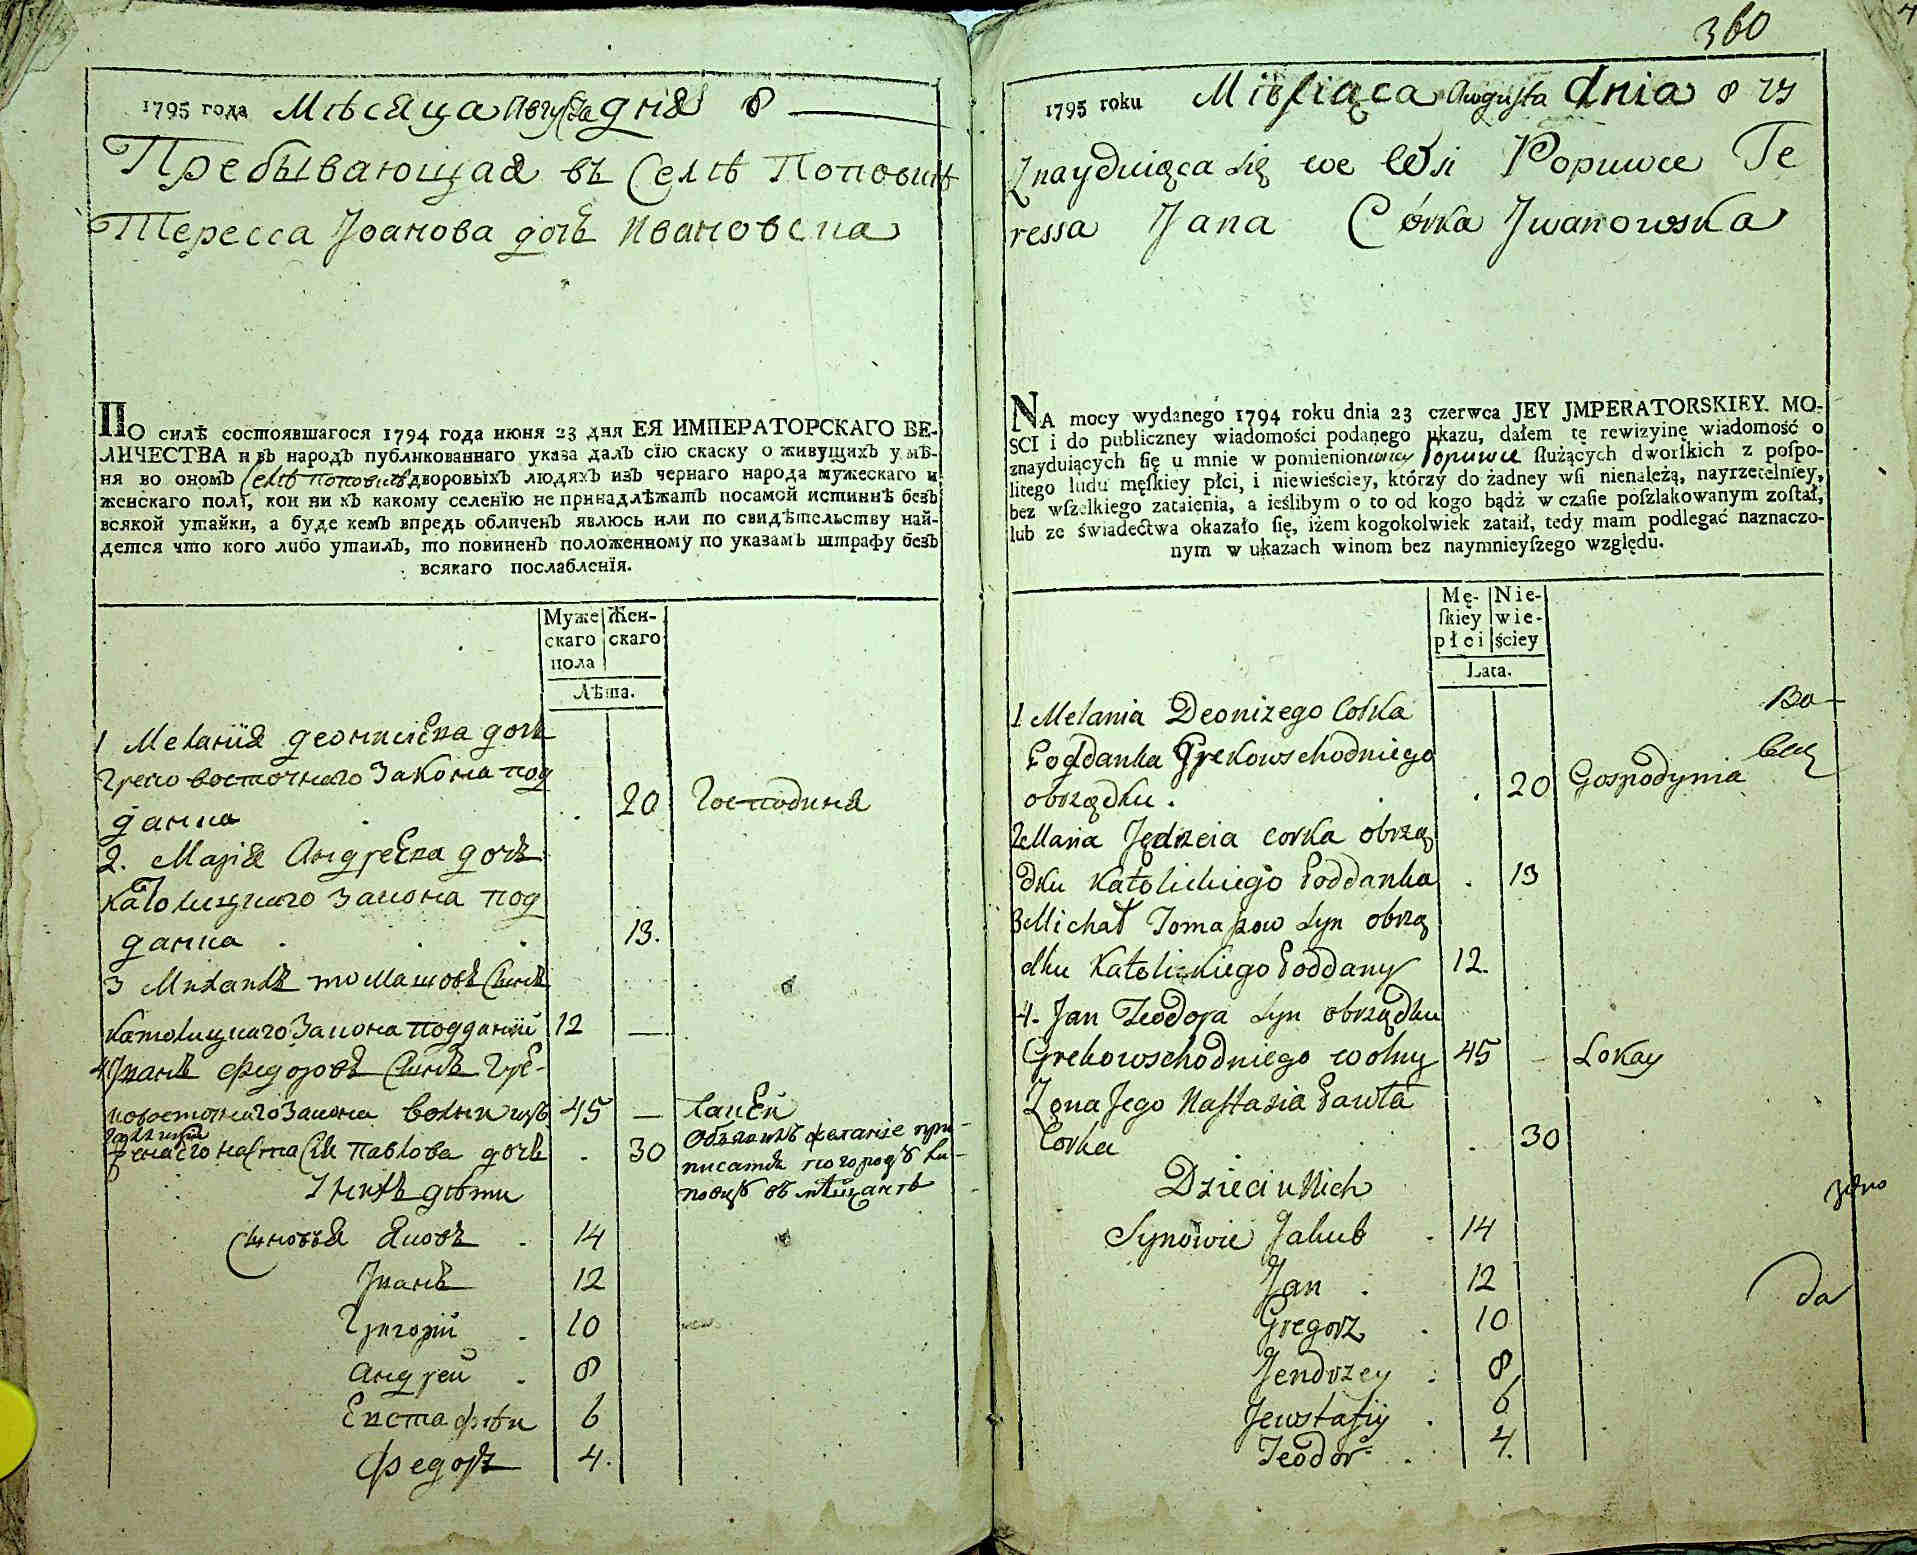 360
1795 года Мѣсяца Августа дня 8
Пребывающая въ Селѣ Поповцѣ
Тересса Іоанова дочь Ивановска
По силѣ состоявшагося 1794 года июня 23 дня ЕЯ ИМПЕРАТОРСКАГО ВЕ-
ЛИЧЕСТВА и въ народъ публикованнаго указа далъ сїю скаску о живущихъ у мѣ-
ня во ономъ Селѣ Поповцѣ дворовыхъ людяхъ изъ чернаго народа мужескаго и
женскаго полу, кои ни къ какому селенїю не принадлѣжатъ посамой истиннѣ безъ
всякой утайки, а буде кемъ впредь обличенъ явлюсь или по свидѣтельству най-
дется что кого либо утаилъ, то повиненъ положенному по указамъ штрафу безъ
всякаго послабленїя.
Муже Жен-
скаго скаго
пола
Лѣта.
1 Меланїя деонисиева дочь
греко восточнаго Закона под
данка . 20 Господиня
2. Марїя Андреева дочь
католицкаго закона под
данка . 13.
3 Михаилъ томашовъ Сынъ
католицкаго Закона подданїй 12 —
4 Іванъ Федоровъ Сынъ гре-
ковосточнаго Закона волни 45 — лакей
жена его настасїя Павлова дочь . 30 Обявилъ желанїе при-
писатся по городу Ли-
повцу въ мѣщанѣ
У нихъ дѣти
Сыновья Яковъ . 14
Іванъ 12
Григорїй . 10
Андрей . 8
Евстафѣи 6
Федоръ 4.
1795 roku Miesiąca Augusta dnia 8
Znayduiąca się we Wsi Popuwce Te
ressa Jana Córka Jwanowska
NA mocy wydanego 1794 roku dnia 23 czerwca JEY JMPERATORSKIEY MO-
SCI i do publiczney wiadomości podanego ukazu, dałem tę rewizyinę wiadomość o
znayduiących się u mnie w pomienioney Popuwce służących dworſkich z poſpo-
litego ludu męſkiey płci, i niewieściey, którzy do żadney wſi nienależą, nayrzetelniey,
bez wſzelkiego zataienia, a ieślibym o to od kogo bądź w czaſie poſzlakowanym zoſtał,
lub ze świadectwa okazało ſię, iżem kogokolwiek zataił, tedy mam podlegać naznaczo-
nym w ukazach winom bez naymnieyſzego względu.
Mę- Nie-
ſkiey wie-
płci ściey
Lata.
1 Melania Deonizego Corka
Poddanka Grekowschodniego
obrządku . . 20 Gospodynia
2 Maria Jędrzeia corka obrzą
dku Katolickiego Poddanka . 13
3 Michał Tomaszow syn obrzą
dku Katolickiego Poddany 12.
4. Jan Teodora syn obrządku
Grekowschodniego wolny 45 — Lokay
Zona Jego Nastazia Pawła
Corka . 30
Dzieci u Nich
Synowie Jakub . 14
Jan . 12
Gregorz . 10
Jendrzey . 8
Jewstafiy . 6
Teodor . 4.